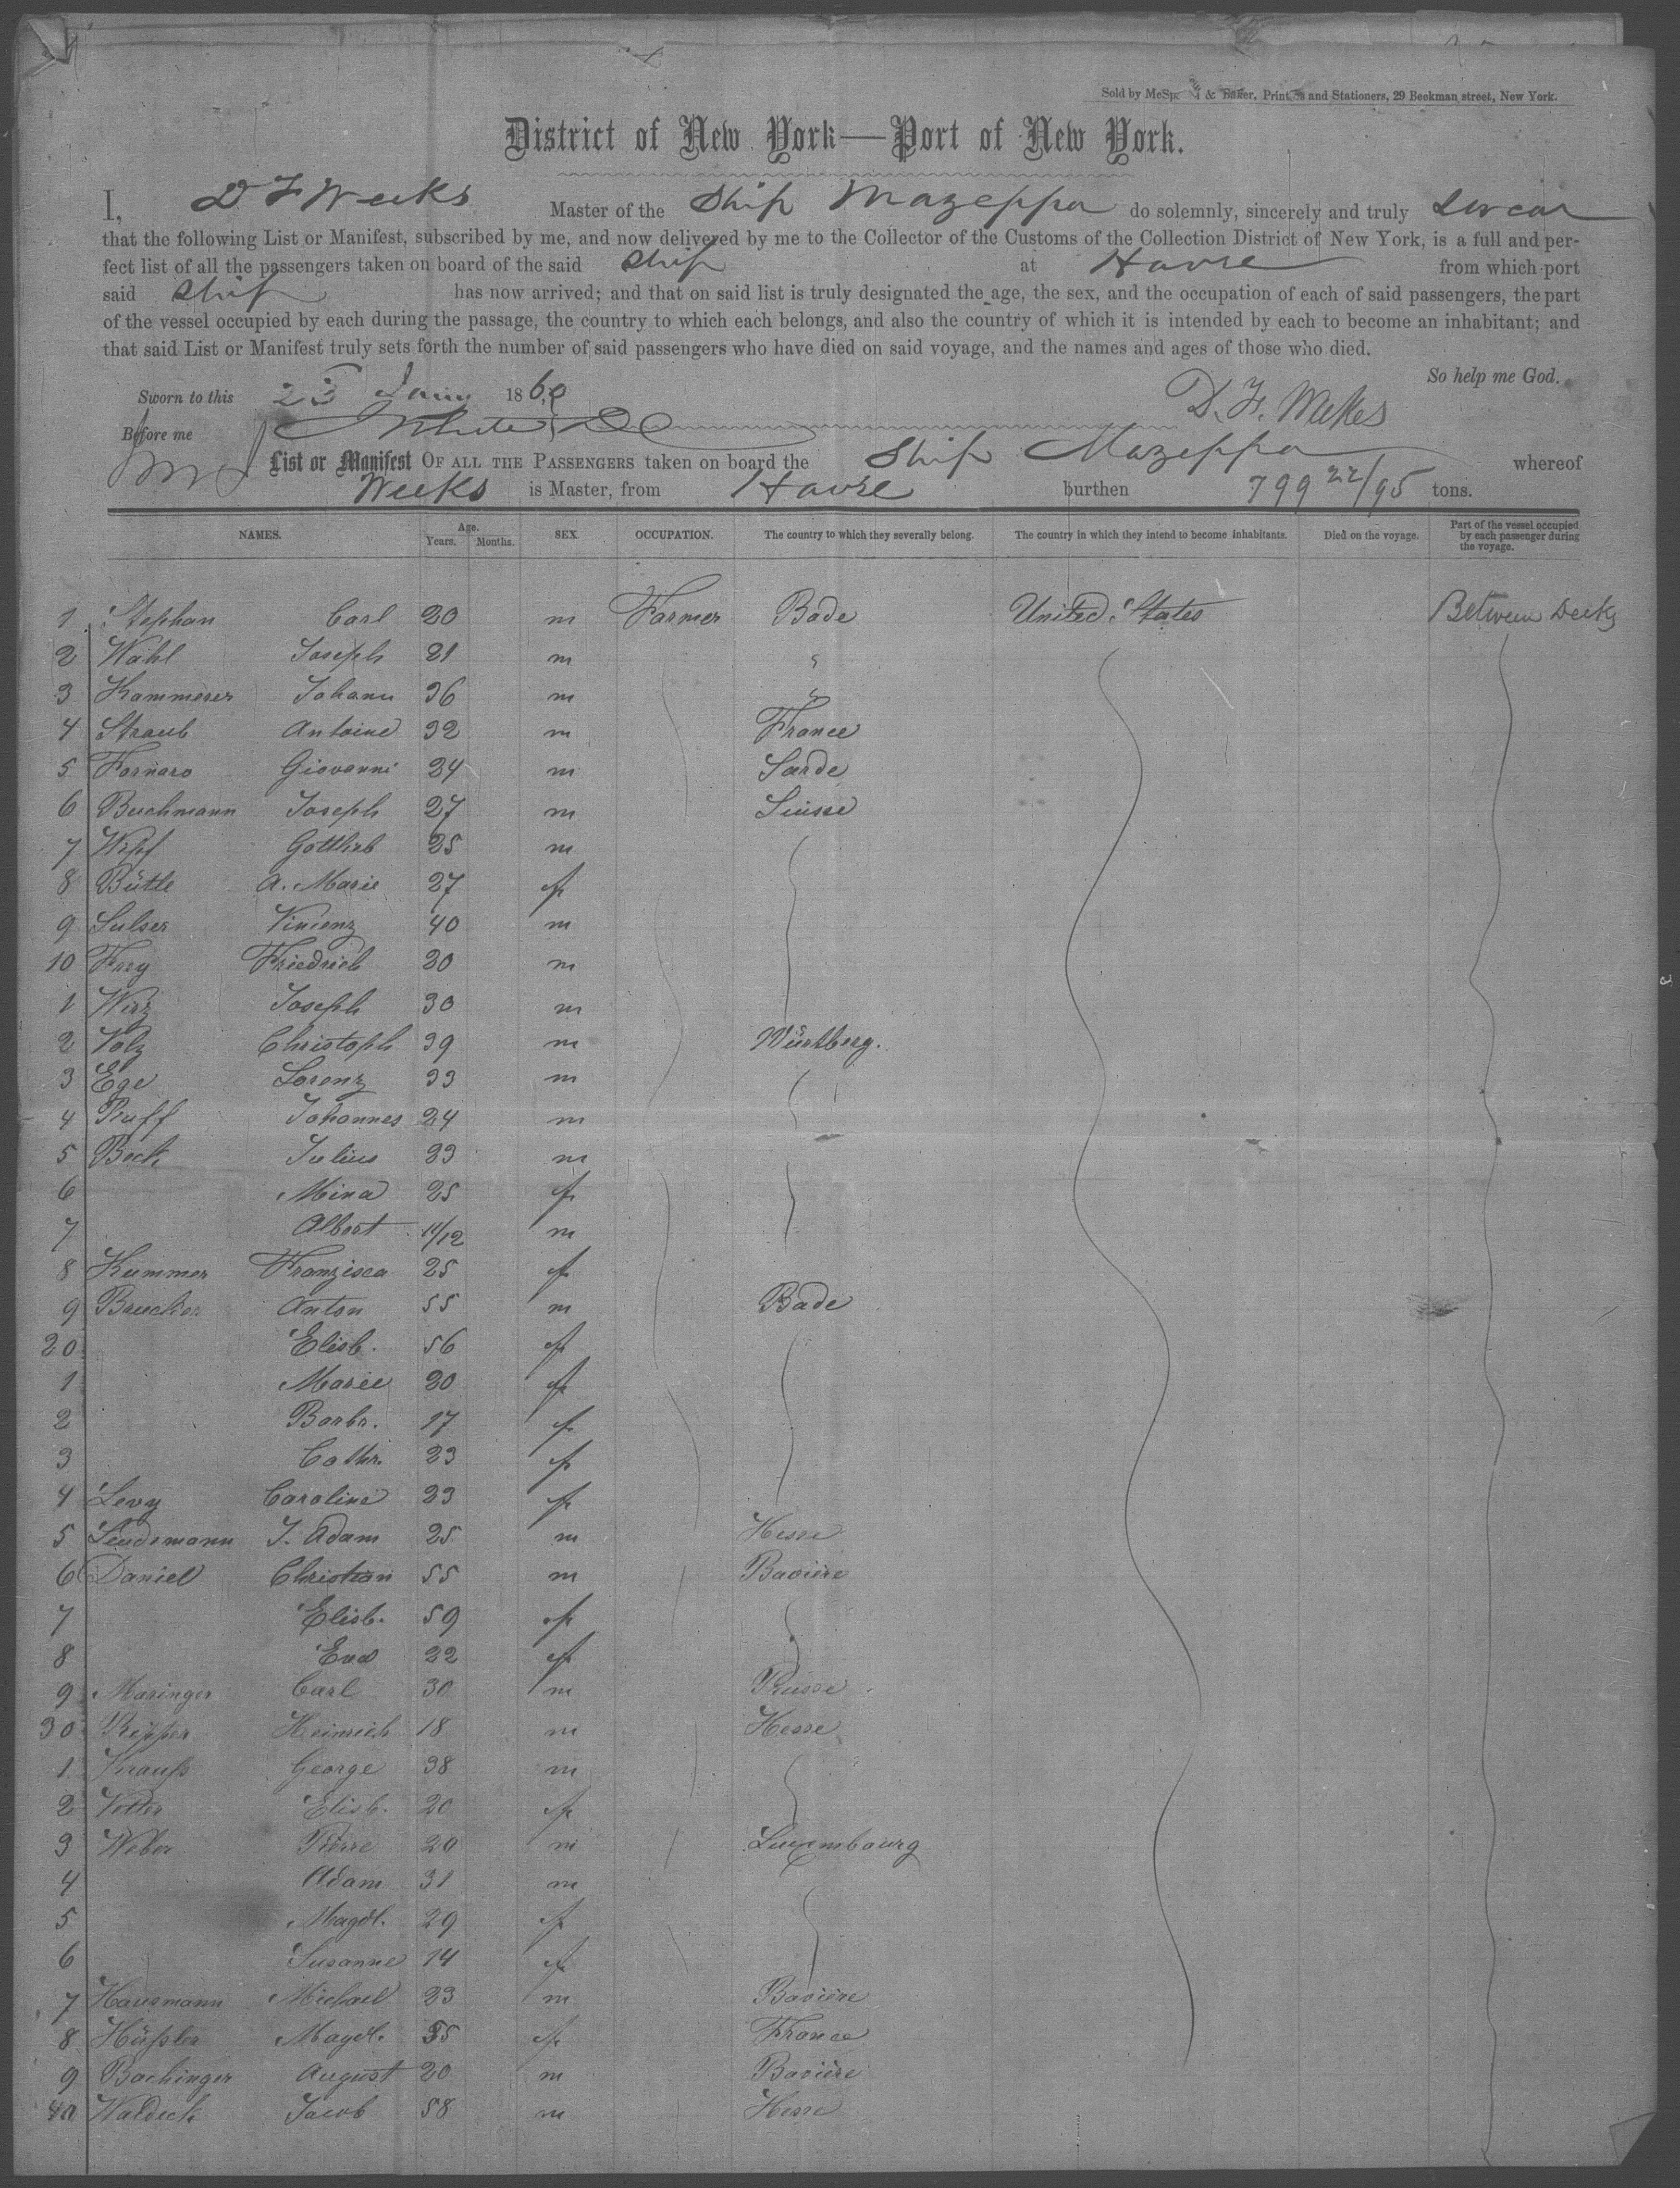 Sold by & Baker, Printers and Stationers, 29 Beekman street, New York.
District of New York—Port of New York.
I, D F Weeks Master of the Ship Mazeppa do solemnly, sincerely and truly swear
that the following List or Manifest, subscribed by me, and now delivered by me to the Collector of the Customs of the Collection District of New York, is a full and per-
fect list of all the passengers taken on board of the said Ship at Havre from which port
said Ship has now arrived; and that on said list is truly designated the age, the sex, and the occupation of each of said passengers, the part
of the vessel occupied by each during the passage, the country to which each belongs, and also the country of which it is intended by each to become an inhabitant; and
that said List or Manifest truly sets forth the number of said passengers who have died on said voyage, and the names and ages of those who died.
So help me God.
Sworn to this 23 1860 D. F. Weekes
Before me
List or Manifest OF ALL THE PASSENGERS taken on board the Ship Mazeppa whereof
Weeks is Master, from Havre burthen 799 22/95 tons.
NAMES. Age. Years. Months. SEX. OCCUPATION. The country to which they severally belong. The country in which they intend to become inhabitants. Died on the voyage. Part of the vessel occupied by each passenger during the voyage.
1 Stephan Carl 20 m Farmer Bade United States Between Decks
2 Wahl Joseph 21 m "
3 Kammerer Johann 36 m "
4 Straub Antoine 32 m France
5 Fornaro Giovanni 24 m Sarde
6 Buchmann Joseph 27 m Suisse
7 Wipf Gottlieb 25 m
8 Bütle A. Marie 27 f
9 Sulser Vincenz 40 m
10 Frey Friedrich 20 m
1 Wirz Joseph 30 m
2 Volz Christoph 39 m Würtberg.
3 Ege Lorenz 33 m
4 Ruff Johannes 24 m
5 Beck Julius 23 m
6 Mina 25 f
7 Albert 11/12 m
8 Kummer Franzisca 25 f
9 Anton 55 m Bade
20 Elisb. 56 f
1 Marie 20 f
2 Barbr. 17 f
3 Cathr. 23 f
4 Levy Caroline 23 f
5 J. Adam 25 m Hesse
6 Daniel Christian 55 m Baviere
7 Elisb. 59 f
8 Eva 22 f
9 Maringer Carl 30 m
30 Heinrich 18 m Hesse
1 Knauss George 38 m
2 Vetter Elisb. 20 f
3 Weber Pierre 20 m Luxembourg
4 Adam 31 m
5 Magdl. 29 f
6 Susanne 14 f
7 Hausmann Michael 23 m Baviere
8 Magdl. 55 f France
9 Bachinger August 20 m Baviere
40 Waldeck Jacob 58 m Hesse